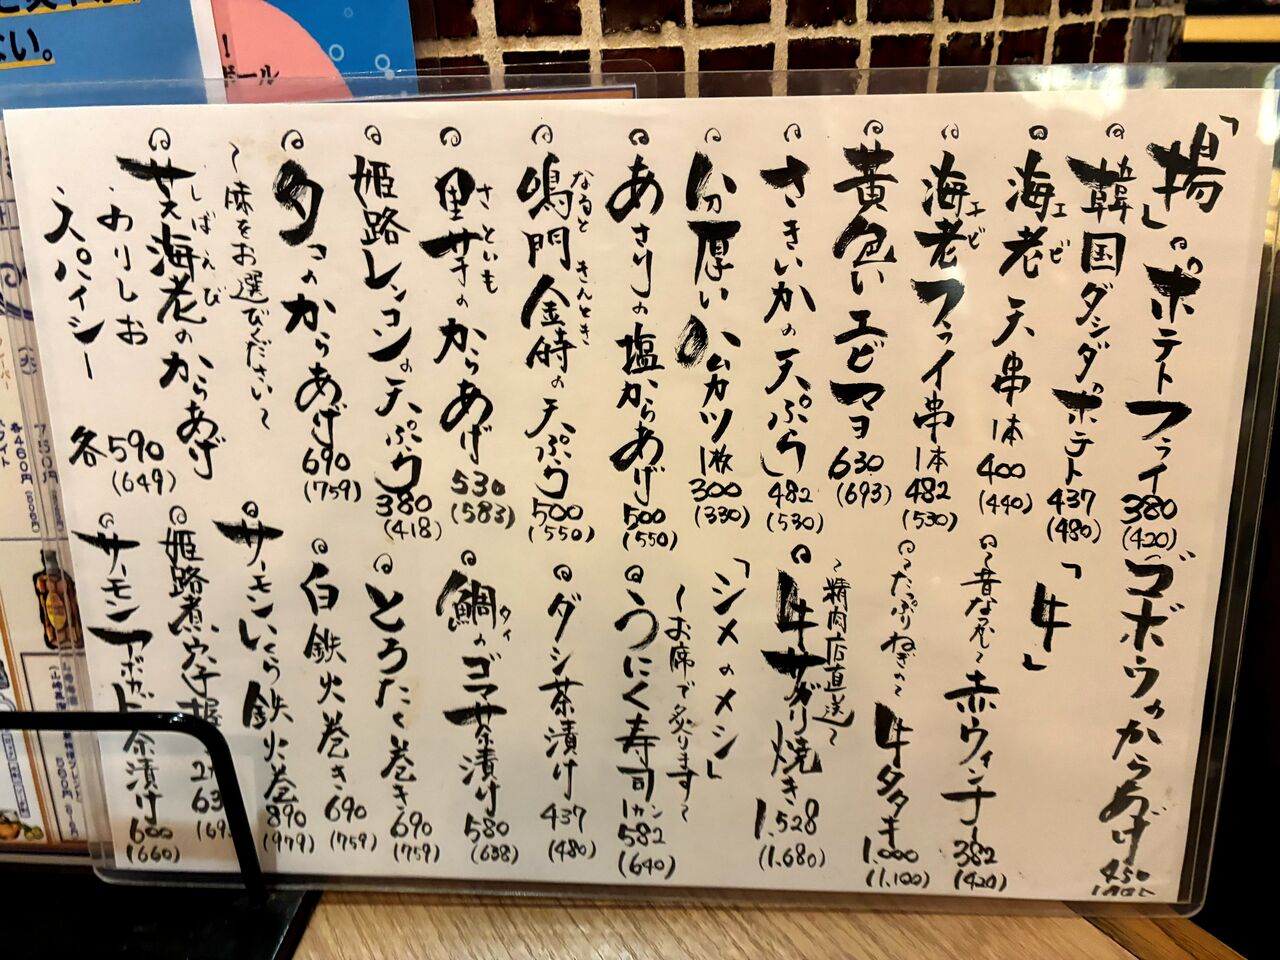 「揚」
ポテトフライ 380 (420)
韓国ダシダポテト 437 (480)
海老天串 1本 400 (440)
エビ
海老フライ串 1本 482 (530)
エビ
黄色いエビマヨ 630 (693)
さきいかの天ぷら 482 (530)
分厚いハムカツ 1枚 300 (330)
あさりの塩からあげ 500 (550)
鳴門金時の天ぷら 500 (550)
なると きんとき
里芋のからあげ 530 (583)
さといも
姫路レンコンの天ぷら 380 (418)
タコのからあげ 690 (759)
〜味をお選びください〜
芝海老のからあげ
しばえび
おりしお
スパイシー
各 590 (649)
ゴボウのからあげ 450
「牛」
〜昔なつかし〜赤ウィンナー 382 (420)
〜たっぷりねぎの〜牛タタキ 1,000 (1,100)
〜精肉店直送〜
牛サガリ焼き 1,528 (1,680)
「シメのメシ」
〜お席で炙ります〜
うにく寿司 1カン 582 (640)
ダシ茶漬け 437 (480)
鯛のゴマ茶漬け 580 (638)
タイ
とろたく巻き 690 (759)
白鉄火巻き 690 (759)
サーモンいくら鉄火巻 890 (979)
姫路煮穴子握
サーモンアボカド茶漬け 600 (660)
ない。
ボール